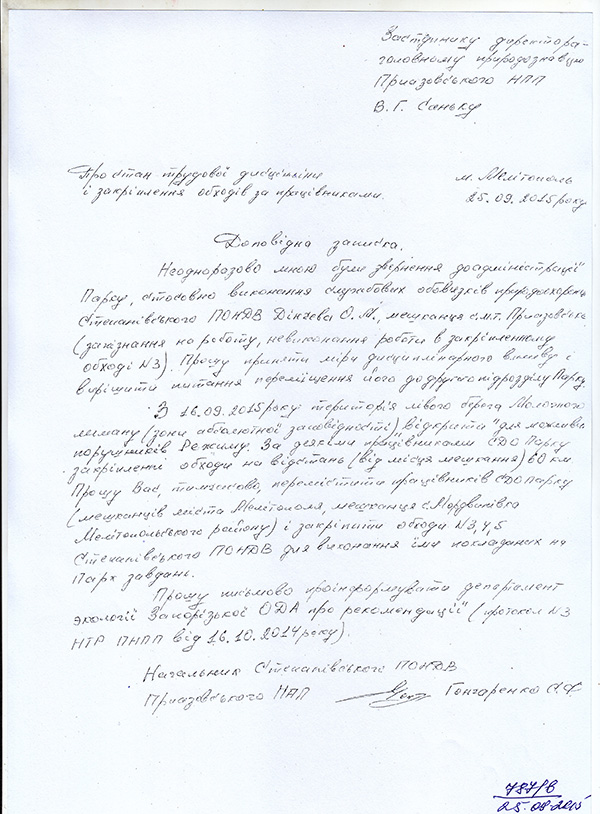 Заступнику директора-
головному природознавцю
Приазовського НПП
В. Г. Саньку
Про стан трудової дисципліни
і закріплення обходів за працівниками.
м. Мелітополь
25.09.2015 року
Доповідна записка.
Неодноразово мною були звернення до адміністрації
Парку, стосовно виконання службових обов'язків природоохоронця
Степанівського ПОНДВ Дінчева О.М., мешканця смт. Приазовське
(запізнання на роботу, невиконання роботи в закріпленному
обході №3). Прошу прийняти міри дисциплінарного впливу і
вирішити питання переміщення його до другого підрозділу Парку.
З 16.09.2015 року територія лівого берега Молочного
лиману (зони абсолютної заповідності) відкрита "для можливих
порушників Режиму. За деякими працівниками СДО Парку
закріпленні обходи на відстань (від місця мешкання) 60 км.
Прошу Вас, тимчасово, перемістити працівників СДО Парку
(мешканців міста Мелітополя, мешканця с. Мордвинівка
Мелітопольського району) і закріпити обходи №3,4,5
Степанівського ПОНДВ для виконання їми покладаних на
Парк завдань.
Прошу письмово проінформувати департамент
экології Запорізької ОДА про рекомендації (протокол №3
НТР ПНПП від 16.10.2014 року).
Начальник Степанівського ПОНДВ
Приазовського НПП Гончаренко
787/В
25.09.2015